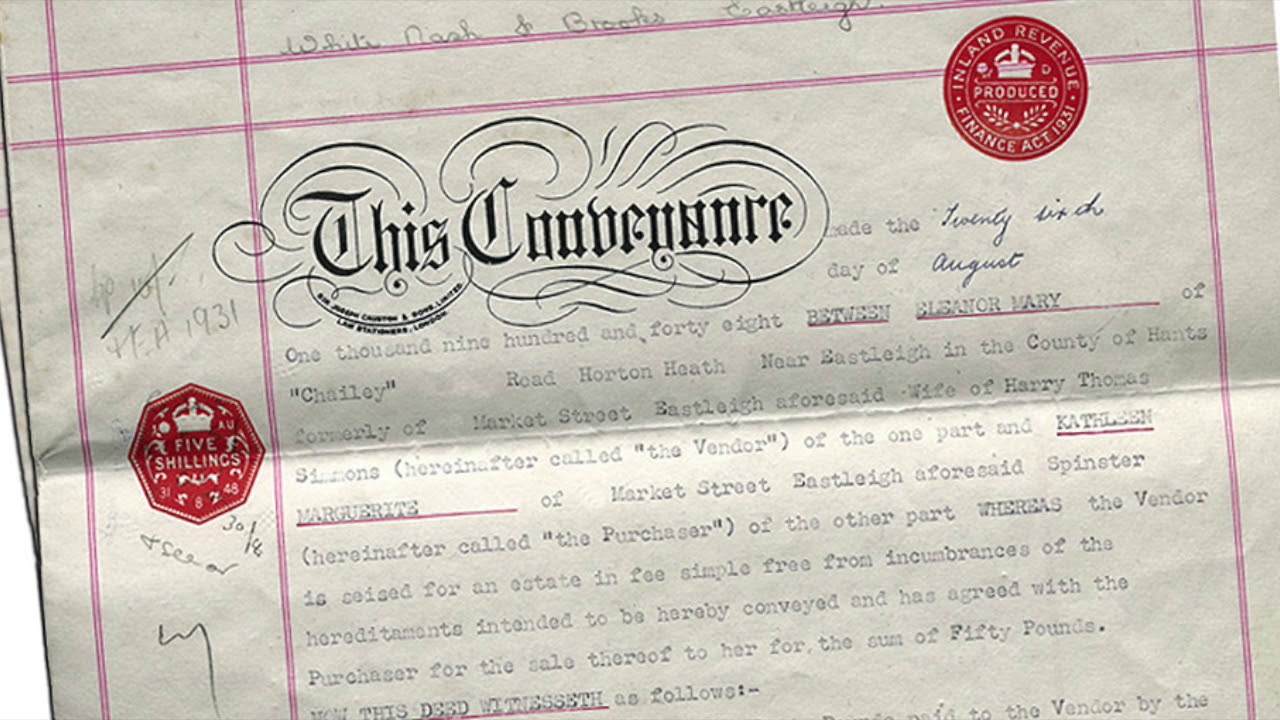 White Nash & Brooks Eastleigh.
INLAND REVENUE
PRODUCED
FINANCE ACT 1931
This Conveyance made the Twenty sixth
day of August
SIR JOSEPH CAUSTON & SONS, LIMITED,
LAW STATIONERS, LONDON.
1931
One thousand nine hundred and forty eight BETWEEN ELEANOR MARY of
"Chailey" Road Horton Heath Near Eastleigh in the County of Hants
formerly of Market Street Eastleigh aforesaid Wife of Harry Thomas
Simmons (hereinafter called "the Vendor") of the one part and KATHLEEN
AU
FIVE
SHILLINGS
31 8 48
30/8
MARGUERITE of Market Street Eastleigh aforesaid Spinster
(hereinafter called "the Purchaser") of the other part WHEREAS the Vendor
is seised for an estate in fee simple free from incumbrances of the
hereditaments intended to be hereby conveyed and has agreed with the
Purchaser for the sale thereof to her for the sum of Fifty Pounds.
NOW THIS DEED WITNESSETH as follows:-
paid to the Vendor by the